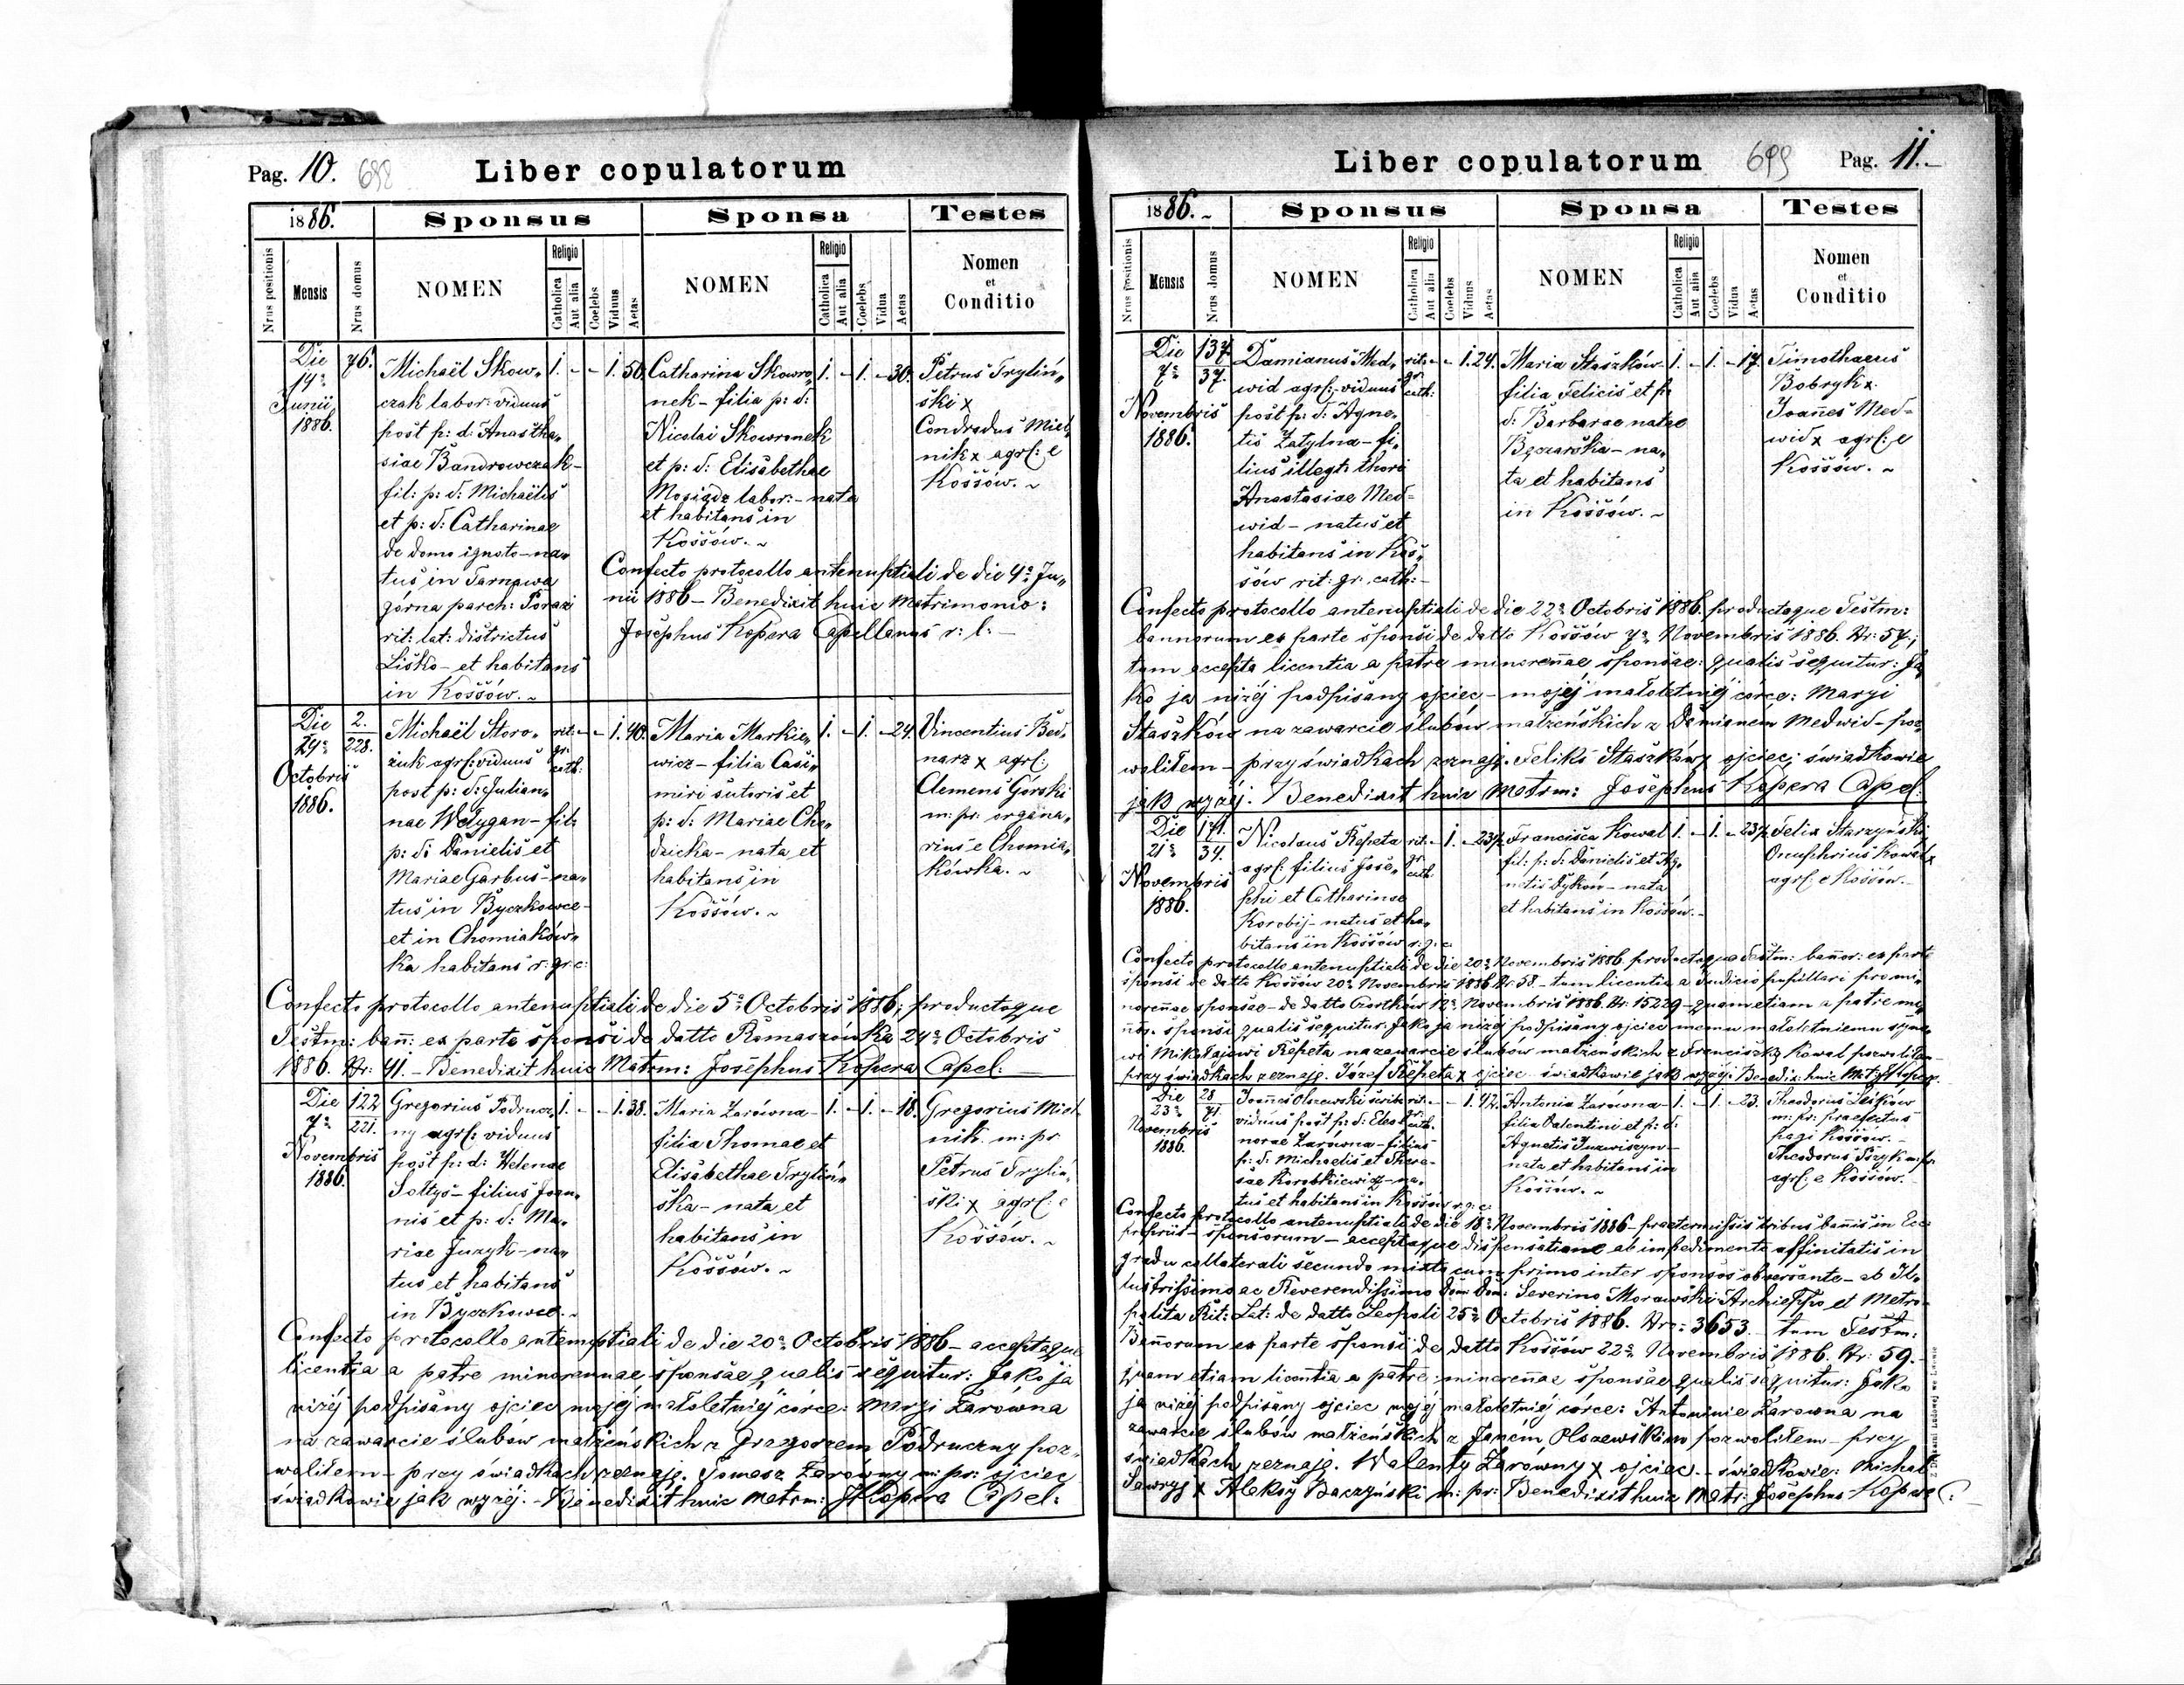 Pag. 10. 698 Liber copulatorum
1886. Sponsus Sponsa Testes
Nrus positionis Mensis Nrus domus NOMEN Religio Catholica Aut alia Coelebs Viduus Aetas NOMEN Religio Catholica Aut alia Coelebs Vidua Aetas Nomen et Conditio
Die 14a Junii 1886. 76.
Michaël Skow„
czak labor: viduus
post p: d: Anastha„
siae Bandrowczak–
fil: p: d: Michaëlis
et p: d: Catharinae
de domo ignoto–na„
tus in Tarnawa
górna parch: Poraż
rit: lat: districtus
Lisko–et habitans
in Kossów.~
1. – – 1. 50.
Catharina Skowro„
nek–filia p: d:
Nicolai Skowronek
et p: d: Elisabethae
Mosiądz labor:–nata
et habitans in
Kossów.~
1. – 1. – 30.
Petrus Tryliń„
ski x
Condradus Miel„
nik x agrl: e
Kossów.~
Confecto protocollo antenuptiali de die 4a Ju„
nii 1886–Benedixit huic Matrimonio:
Josephus Kopera Capellanus r: l:–
Die 24a Octobris 1886. 2. 228.
Michaël Storo„
żuk agrl: viduus
post p: d: Julian„
nae Welygan–fil:
p: d: Danielis et
Mariae Garbus–na„
tus in Byczkowce–
et in Chomiaków„
ka habitans r: gr: c:
rit: gr: cath: – – 1. 40.
Maria Markie„
wicz–filia Casi„
miri sutoris et
p: d: Mariae Cho„
dzicka–nata et
habitans in
Kossów.~
1. – 1. – 24.
Vincentius Bed„
narz x agrl:,
Clemens Górski
m: pr: organa„
rius e Chomia„
kówka.~
Confecto protocollo antenuptiali de die 5a Octobris 1886; productoque
Testm: bann: ex parte sponsi de datto Romaszówka 24a Octobris
1886. Nr: 41.–Benedixit huic Matrm: Josephus Kopera Capel:
Die 7a Novembris 1886. 122 221.
Gregorius Podrucz„
ny agrl: viduus
post p: d: Helenae
Soltys–filius Joan„
nis et p: d: Ma„
riae Juzyk–na„
tus et habitans
in Byczkowce.~
1. – – 1. 38.
Maria Zarówna–
filia Thomae et
Elisabethae Tryliń„
ska–nata et
habitans in
Kossów.~
1. – 1. – 18.
Gregorius Miel„
nik m: pr:
Petrus Tryliń„
ski x agrl: e
Kossów.~
Confecto protocollo antenuptiali de die 20a Octobris 1886–acceptaque
licentia a patre minorennae sponsae qualis sequitur: Jako ja
niżéj podpisany ojciec mojéj małoletniéj córce: Maryi Żarówna
na zawarcie ślubów małżeńskich z Grzegorzem Podruczny poz„
woliłem–przy świadkach zeznaję. Tomasz Żarówny m: pr: ojciec
świadkowie jak wyżéj.–Benedixit huic Matrm: JKopera Capel:
Liber copulatorum 699 Pag. 11.–
1886.~ Sponsus Sponsa Testes
Nrus positionis Mensis Nrus domus NOMEN Religio Catholica Aut alia Coelebs Viduus Aetas NOMEN Religio Catholica Aut alia Coelebs Vidua Aetas Nomen et Conditio
Die 7a Novembris 1886. 137. 37.
Damianus Med„
wid agrl: viduus
post p: d: Agne„
tis Zatylna–fi„
lius illegt: thori
Anastasiae Med=
wid–natus et
habitans in Kos„
sów rit: gr: cath:–
rit: gr: cath: – – 1. 24.
Maria Staszków
filia Felicis et p:
d: Barbarae natae
Bęczarska–na„
ta et habitans
in Kossów.~
1. – 1. – 17.
Timothaeus
Bobryk x.
Joanes Med=
wid x agrl: e
Kossów.~
Confecto protocollo antenuptiali de die 22a Octobris 1886. productoque Testm:
bannorum ex parte sponsi de datto Kossów 7a Novembris 1886. Nr: 57.;
tum accepta licentia a patre minorenae sponsae: qualis sequitur: Ja„
ko ja niżéj podpisany ojciec–mojéj małoletniéj córce: Maryi
Staszków na zawarcie ślubów małżeńskich z Damianem Medwid–poz„
woliłem–przy świadkach zeznaję. Feliks Staszków x ojciec; świadkowie
jak wyżéj. Benedixit huic Matrm: Josephus Kopera Capel:
Die 21a Novembris 1886. 171. 34.
Nicolaus Rzepeta
agrl: filius Jose„
phi et Catharinae
Korobij–natus et ha„
bitans in Kossów r: g: c:
rit: gr: cath: – 1. – 23½
Francisca Kowal
fil: p: d: Danielis et Ag„
netis Dyków–nata
et habitans in Kossów.–
1. – 1. – 23½
Felix Starzyński,
Onuphrius Kowal x
agrl: e Kossów.–
Confecto protocollo antenuptiali de die 20a Novembris 1886 productoque Testm: bannor: ex parte
sponsi de datto Kossów 20a Novembris 1886 Nr: 58–tum licentia a Judicio pupillari pro mi„
norennae sponsae–de datto Czortków 12a Novembris 1886. Nr: 15229–quam etiam a patre mi„
nor: sponsi qualis sequitur: Jako ja niżéj podpisany ojciec memu małoletniemu syno„
wi Mikołajowi Rzepeta na zawarcie ślubów małżeńskich z Franciszką Kowal pozwoliłem–
przy świadkach zeznaję. Józef Rzepeta x ojciec świadkowie jak wyżéj. Benedix: huic Matr: JKopera
Die 23a Novembris 1886. 28 71.
Joannes Olszewski scriba
viduus post p: d: Eleo„
norae Zarówna–filius
p: d: Michaelis et There„
sae Korobkiewicz–na„
tus et habitans in Kossów r: g: c:
rit: gr: cath: – – 1. 42.
Antonia Zarówna–
filia Valentini et p: d:
Agnetis Juzwiszyn–
nata et habitans in
Kossów.~
1. – 1. – 23.
Theodorus Leśków
m: pr: praefectus
pagi Kossów.–
Theodorus Pszyk m: pr:
agrl: e Kossów.
Confecto protocollo antenuptiali de die 18a Novembris 1886–praetermissis tribus bannis in Ecc:
propriis–sponsorum–acceptaque dispensatione ab impedimento affinitatis in
gradu collaterali secundo mixto cum primo inter sponsos observante–ab Il„
lustrissimo ac Reverendissimo Dom: Dom: Severino Morawski Archieppo et Metro„
polita Rit: Lat: de datto Leopoli 25a Octobris 1886. Nr: 3653. tum Testm:
Bannorum ex parte sponsi de datto Kossów 22a Novembris 1886. Nr: 59.–
quam etiam licentia a patre minorennae sponsae qualis sequitur: Jako
ja niżéj podpisany ojciec mojéj małoletniéj córce: Antoninie Żarowna na
zawarcie ślubów małżeńskich z Janem Olszewskim pozwoliłem–przy
świadkach zeznaję. Walenty Żarówny x ojciec.–świadkowie: Michał
Sawryj x Aleksy Baczyński m: pr: Benedixit huic Matr: Josephus Kopera C: